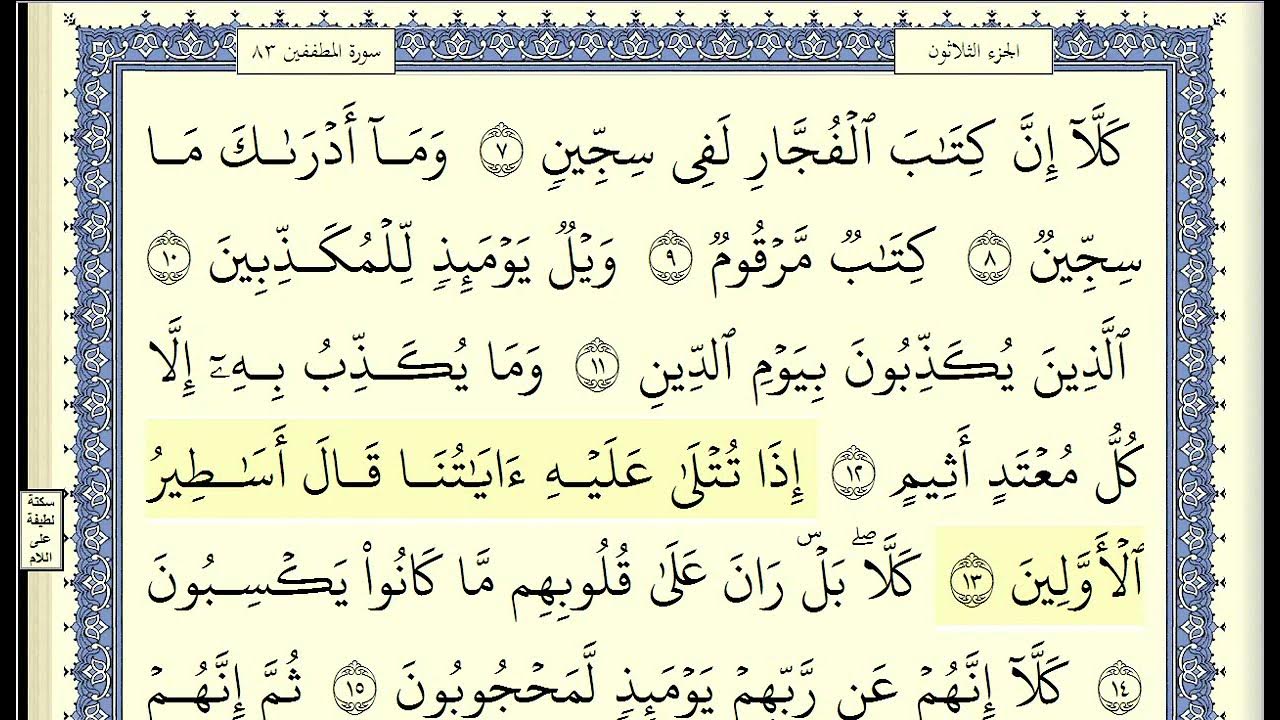 الجزء الثلاثون
سورة المطففين ٨٣
كَلَّآ إِنَّ كِتَٰبَ ٱلْفُجَّارِ لَفِى سِجِّينٍۢ ٧ وَمَآ أَدْرَىٰكَ مَا
سِجِّينٌۭ ٨ كِتَٰبٌۭ مَّرْقُومٌۭ ٩ وَيْلٌۭ يَوْمَئِذٍۢ لِّلْمُكَذِّبِينَ ١٠
ٱلَّذِينَ يُكَذِّبُونَ بِيَوْمِ ٱلدِّينِ ١١ وَمَا يُكَذِّبُ بِهِۦٓ إِلَّا
كُلُّ مُعْتَدٍ أَثِيمٍ ١٢ إِذَا تُتْلَىٰ عَلَيْهِ ءَايَٰتُنَا قَالَ أَسَٰطِيرُ
ٱلْأَوَّلِينَ ١٣ كَلَّا ۖ بَلْ ۜ رَانَ عَلَىٰ قُلُوبِهِم مَّا كَانُوا۟ يَكْسِبُونَ
١٤ كَلَّآ إِنَّهُمْ عَن رَّبِّهِمْ يَوْمَئِذٍۢ لَّمَحْجُوبُونَ ١٥ ثُمَّ إِنَّهُمْ
سكتة
لطيفة
على
اللام